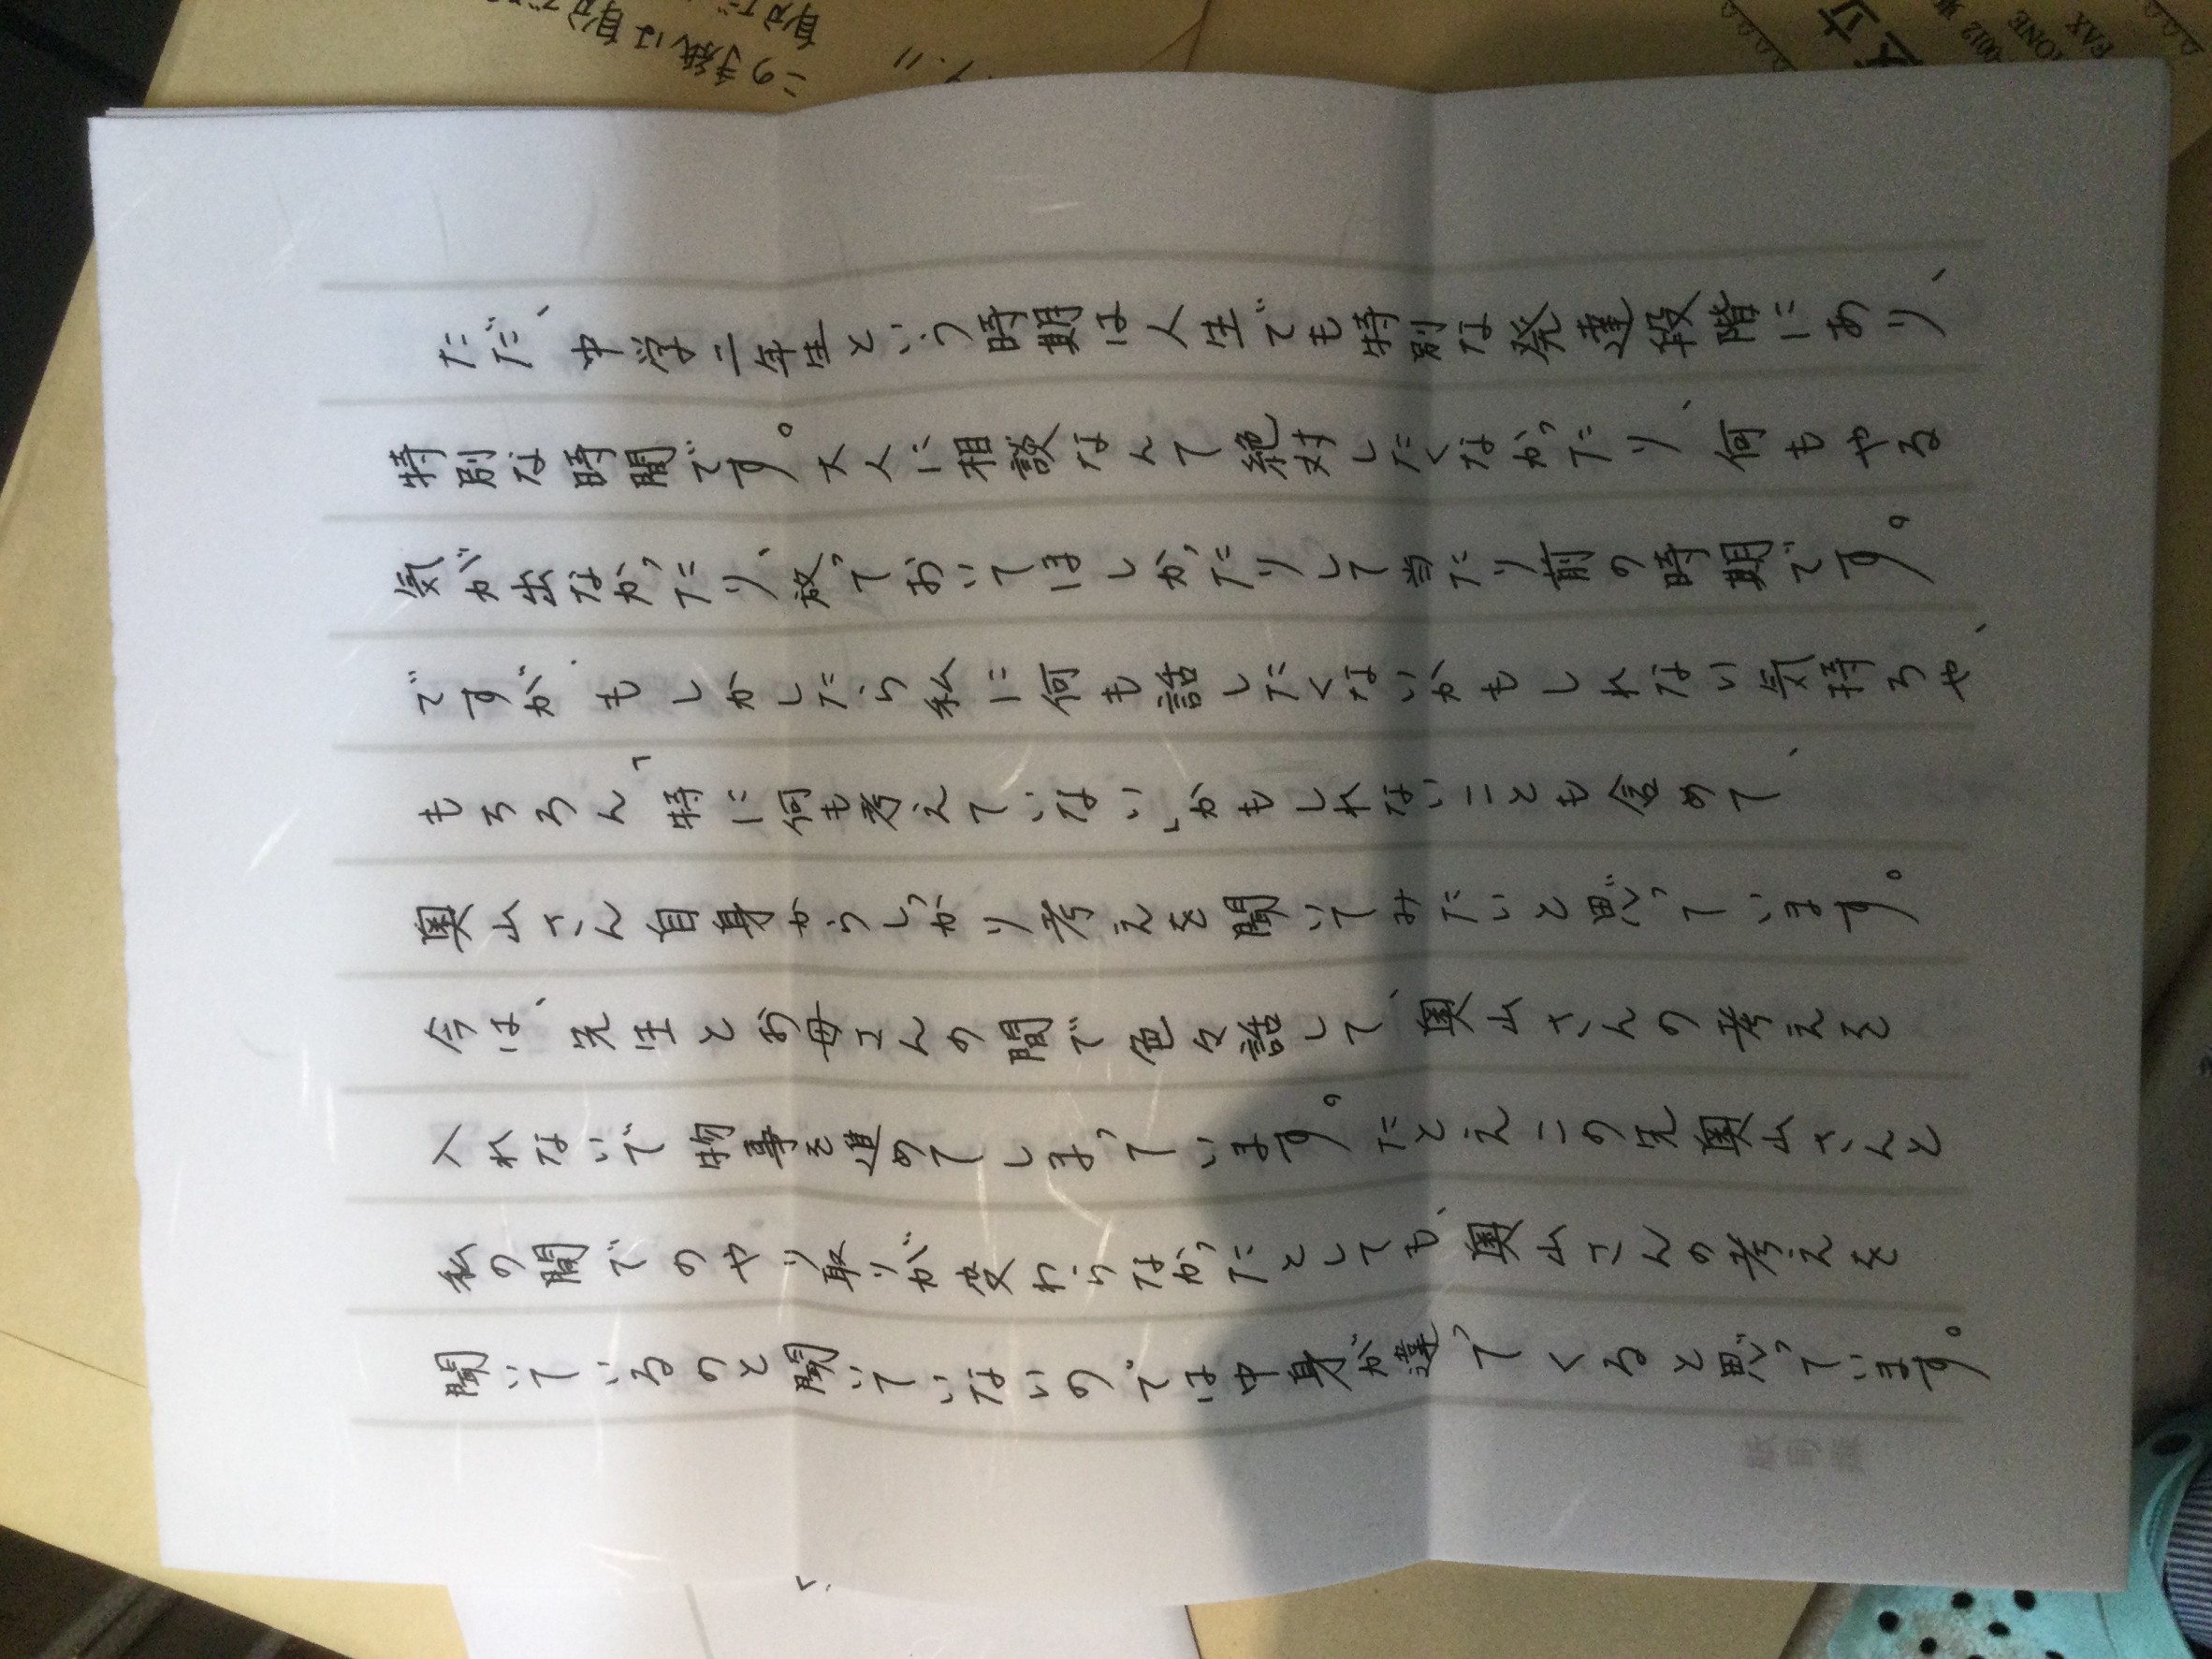 ただ、中学二年生という時期は人生でも特別な発達段階にあり、
特別な時間です。大人に相談なんて絶対したくなかったり、何もやる
気が出なかったり、放っておいてほしかったりして当たり前の時期です。
ですが、もしかしたら私に何も話したくないかもしれない気持ちや、
もちろん「特に何も考えていない」かもしれないことも含めて、
奥山さん自身からしっかり考えを聞いてみたいと思っています。
今は、先生とお母さんの間で色々話して、奥山さんの考えを
入れないで物事を進めてしまっています。たとえこの先奥山さんと
私の間でのやり取りが変わらなかったとしても、奥山さんの考えを
聞いているのと聞いていないのでは中身が違ってくると思っています。
この手紙は自分で
自分だ
.11
区立
0012 東
FAX